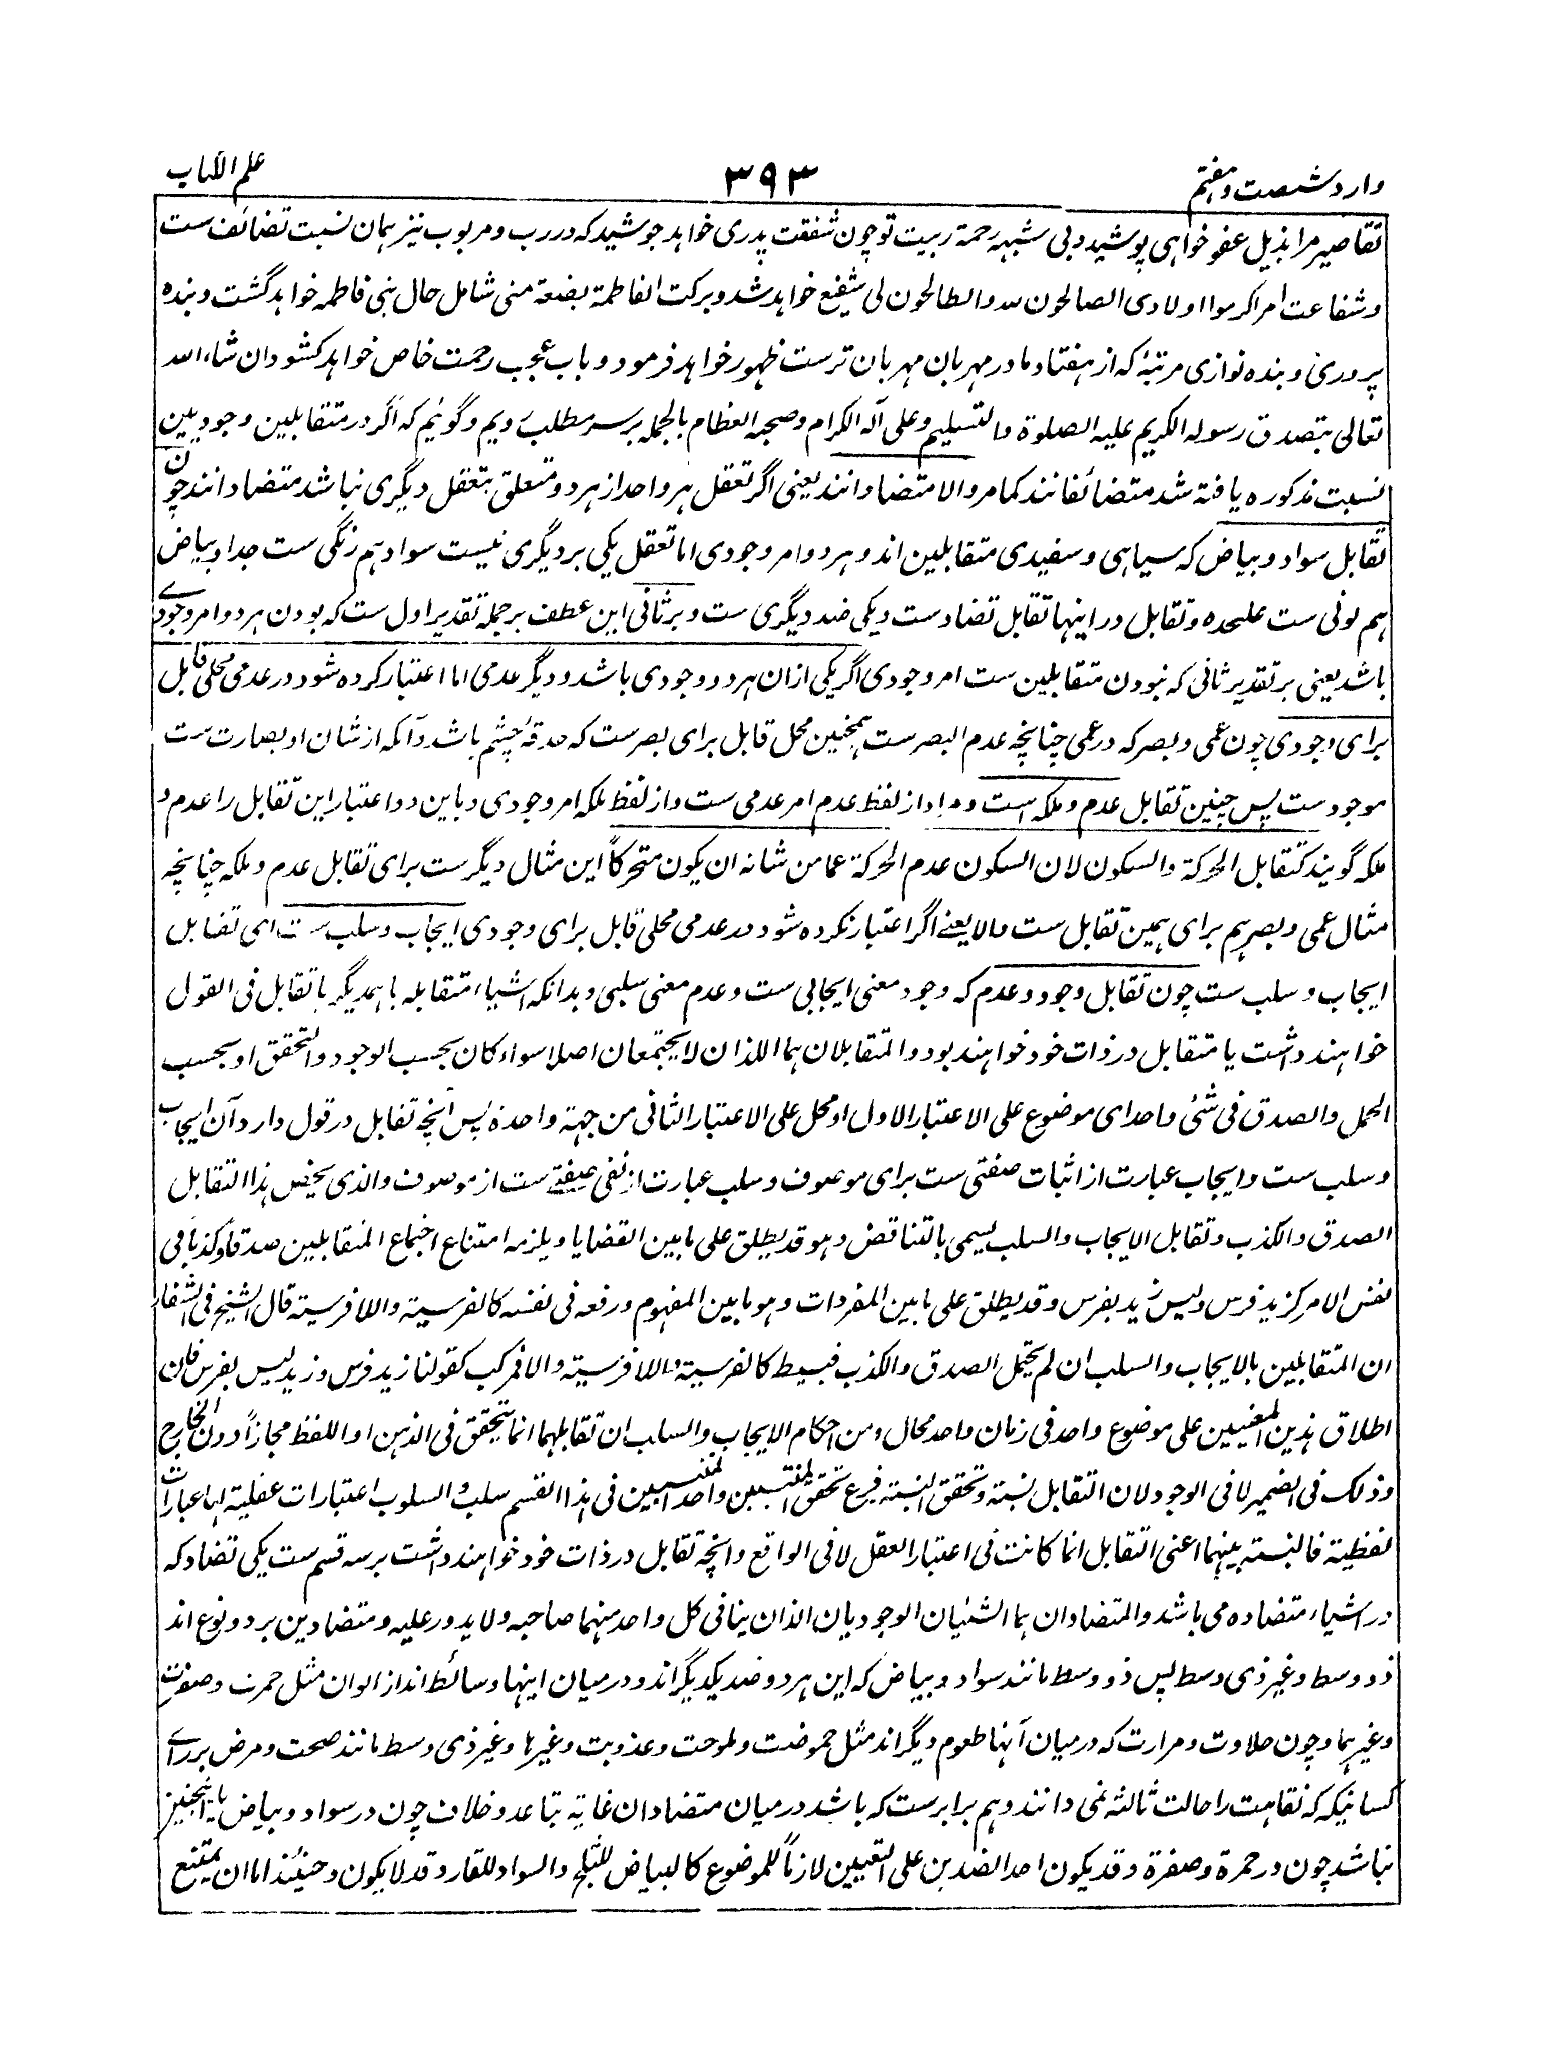 وارد شصت و هفتم
۳۹۳
علم الکتاب
تقاصیر مرا بذیل عفو خواهی پوشید و بی شبهه رحمة ربیت تو چون شفقت پدری خواهد جوشید که در رب و مربوب نیز همان نسبت تضائف ست
و شفاعت امر اکرموا اولادی الصالحون لله والطالحون لی شفیع خواهد شد و برکت الفاطمة بضعة منی شامل حال بنی فاطمه خواهد گشت و بنده
پروری و بنده نوازی مرتبهٔ که از هفتاد مادر مهربان مهربان ترست ظهور خواهد فرمود و باب عجب رحمت خاص خواهد کشود ان شاء الله
تعالی بتصدق رسوله الکریم علیه الصلوة والتسلیم وعلی آله الکرام وصحبه العظام بالجمله بر سر مطلب رویم و گوئیم که اگر در متقابلین وجودیین
نسبت مذکوره یافته شد متضائفانند کما مر والا متضادانند یعنی اگر تعقل هر واحد از هر دو متعلق بتعقل دیگری نباشد متضادانند چون
تقابل سواد و بیاض که سیاهی و سفیدی متقابلین اند و هر دو امر وجودی اما تعقل یکی بر دیگری نیست سواد هم رنگی ست جدا و بیاض
هم لونی ست علیحده و تقابل در اینها تقابل تضاد ست و یکی ضد دیگری ست و بر ثانی این عطف بر جمله تقدیر اول ست که بودن هر دو امر وجودی
باشد یعنی بر تقدیر ثانی که نبودن متقابلین ست امر وجودی اگر یکی ازان هر دو وجودی باشد و دیگر عدمی اما اعتبار کرده شود در عدمی محلی قابل
برای وجودی چون عمی و بصر که در عمی چنانچه عدم البصر ست همچنین محل قابل برای بصر ست که حدقهٔ چشم باشد و آنکه از شان او بصارت ست
موجود ست پس چنین تقابل عدم و ملکه است و مراد از لفظ عدم امر عدمی ست و از لفظ ملکه امر وجودی و باین دو اعتبار این تقابل را عدم و
ملکه گویند کتقابل الحرکة والسکون لان السکون عدم الحرکة عما من شانه ان یکون متحرکاً این مثال دیگر ست برای تقابل عدم و ملکه چنانچه
مثال عمی و بصر هم برای همین تقابل ست والا یعنے اگر اعتبار نکرده شود در عدمی محلی قابل برای وجودی ایجاب و سلب ست ای تقابل
ایجاب و سلب ست چون تقابل وجود و عدم که وجود معنی ایجابی ست و عدم معنی سلبی و بدانکه اشیاء متقابله با همدیگر یا تقابل فی القول
خواهند داشت یا متقابل در ذات خود خواهند بود والمتقابلان هما اللذان لایجتمعان اصلا سواء کان بحسب الوجود والتحقق او بحسب
الحمل والصدق فی شئ واحد ای موضوع علی الاعتبار الاول او محل علی الاعتبار الثانی من جهة واحدة پس آنچه تقابل در قول دارد آن ایجاب
و سلب ست و ایجاب عبارت از اثبات صفتی ست برای موصوف و سلب عبارت از نفی صفتے ست از موصوف والذی یخص بهذا التقابل
الصدق والکذب و تقابل الایجاب والسلب یسمی بالتناقض وهو قد یطلق علی ما بین القضایا ویلزمه امتناع اجتماع المتقابلین صدقاً وکذباً فی
نفس الامر کزید فرس ولیس زید بفرس وقد یطلق علی ما بین المفردات وهو ما بین المفهوم ورفعه فی نفسه کالفرسیة واللافرسیة قال الشیخ فی الشفاء
ان المتقابلین بالایجاب والسلب ان لم یحتمل الصدق والکذب فبسیط کالفرسیة واللافرسیة والا فمرکب کقولنا زید فرس وزید لیس بفرس فان
اطلاق هذین المعنیین علی موضوع واحد فی زمان واحد محال ومن احکام الایجاب والسلب ان تقابلهما انما یتحقق فی الذهن او اللفظ مجازاً دون الخارج
وذلک فی الضمیر لا فی الوجود لان التقابل نسبة وتحقق النسبة فرع تحقق المنتسبین واحد المنتسبین فی هذا القسم سلب والسلوب اعتبارات عقلیة لها عبارات
لفظیة فالنسبة بینهما اعنی التقابل انما کانت فی اعتبار العقل لا فی الواقع و آنچه تقابل در ذات خود خواهند داشت بر سه قسم ست یکی تضاد که
در اشیاء متضاده می باشد والمتضادان هما الشئیان الوجودیان الذان ینافی کل واحد منهما صاحبه ولا یدور علیه و متضادین بر دو نوع اند
ذو وسط و غیر ذی وسط پس ذو وسط مانند سواد و بیاض که این هر دو ضد یکدیگر اند و درمیان اینها وسائط اند از الوان مثل حمرت و صفرت
و غیرهما و چون حلاوت و مرارت که درمیان آنها طعوم دیگر اند مثل حموضت و ملوحت و عذوبت و غیرها و غیر ذی وسط مانند صحت و مرض برای
کسانیکه که نقاهت را حالت ثالثه نمی دانند و هم برابرست که باشد درمیان متضادان غایة تباعد و خلاف چون در سواد و بیاض یا اینچنین
نباشد چون در حمرة و صفرة و قد یکون احد الضدین علی التعیین لازماً للموضوع کالبیاض للثلج والسواد للقار وقد لایکون وحینئذ اما ان یمتنع